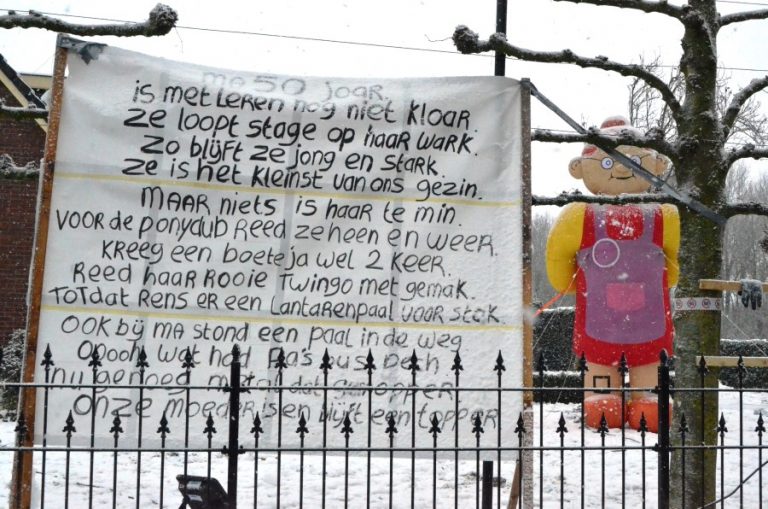 ma 50 joar
is met Leren nog niet kloar.
ze loopt stage op haar wark.
zo blijft ze jong en stark.
ze is het kleinst van ons gezin.
MAAR niets is haar te min.
voor de ponyclub Reed ze heen en weer.
kreeg een boete ja wel 2 keer.
Reed haar Rooie Twingo met gemak.
Totdat Rens er een Lantarenpaal voor stak.
ook bij MA stond een paal in de weg
Oooh wat had Pa's bus pech
nu genoeg
Onze moeder is en blijft een topper